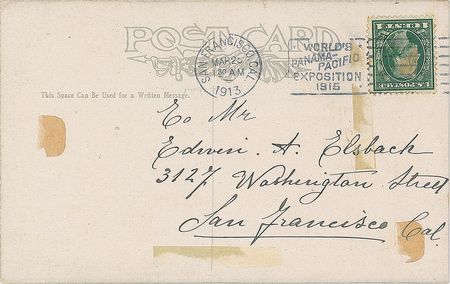 POST CARD
SAN FRANCISCO, CAL.
MAR 25
1913
WORLD'S
PANAMA-PACIFIC
EXPOSITION
1915
U.S. POSTAGE
This Space Can Be Used for a Written Message.
To Mr
Edwin. A. Elsbach
3127 Washington Street
San Francisco
Cal.